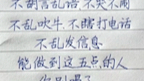 不胡言乱语 不哭不闹
不乱吹牛 不瞎打电话
不乱发信息
能做到这五点的人